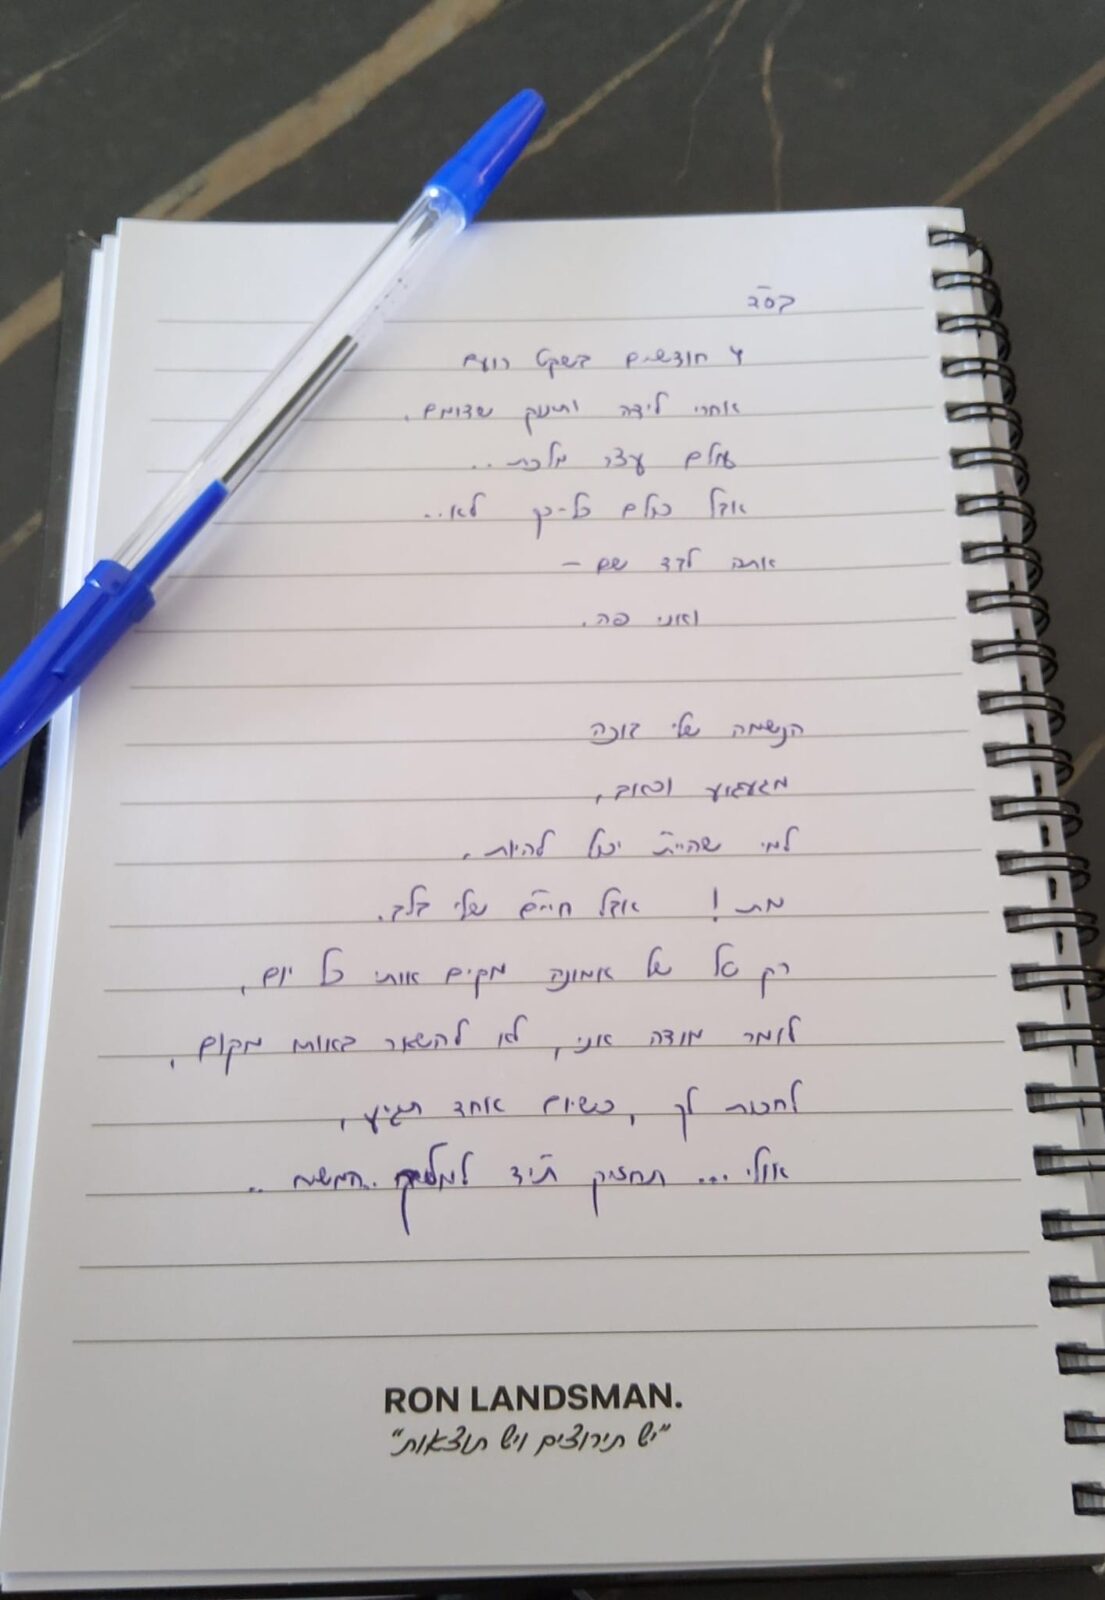 בס"ד
4 חודשים בשקט רועם
אחרי לידה ותינוק שדומם.
עולם עצר מלכת..
אבל כולם כל-כך לא...
אתה לבד שם –
ואני פה.
הנשמה שלי בוכה
מגעגוע וכאוב,
למי שהיית יכול להיות.
מת! אבל חיים שלי בלב.
רק טל של אמונה מקים אותי כל יום,
לומר מודה אני, לא להשאר באותו מקום,
לחכות לך, כשיום אחד תגיע,
אולי... תחזיק ת'יד המשיח..
RON LANDSMAN.
"יש תירוצים ויש תוצאות"